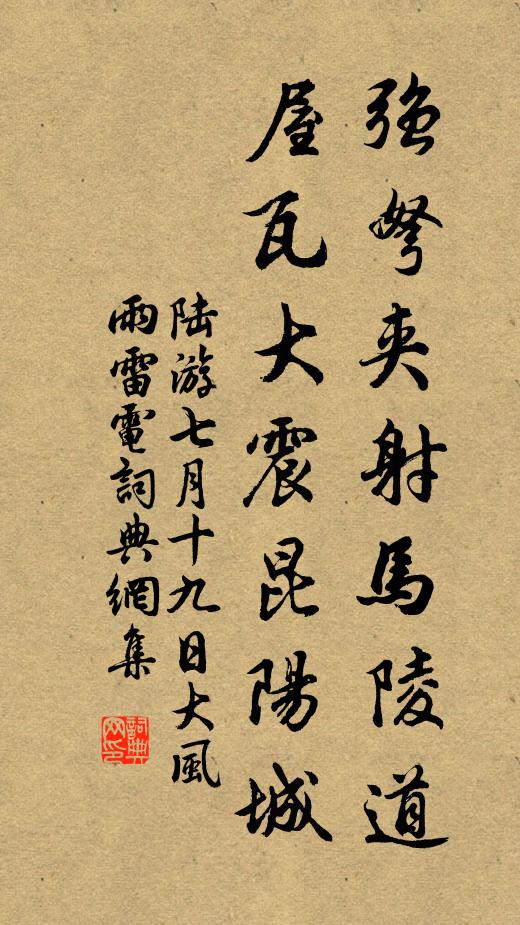 強弩夾射馬陵道
屋瓦大震昆陽城
陸游七月十九日大風
雨雷電詞典網集
詞典
网印